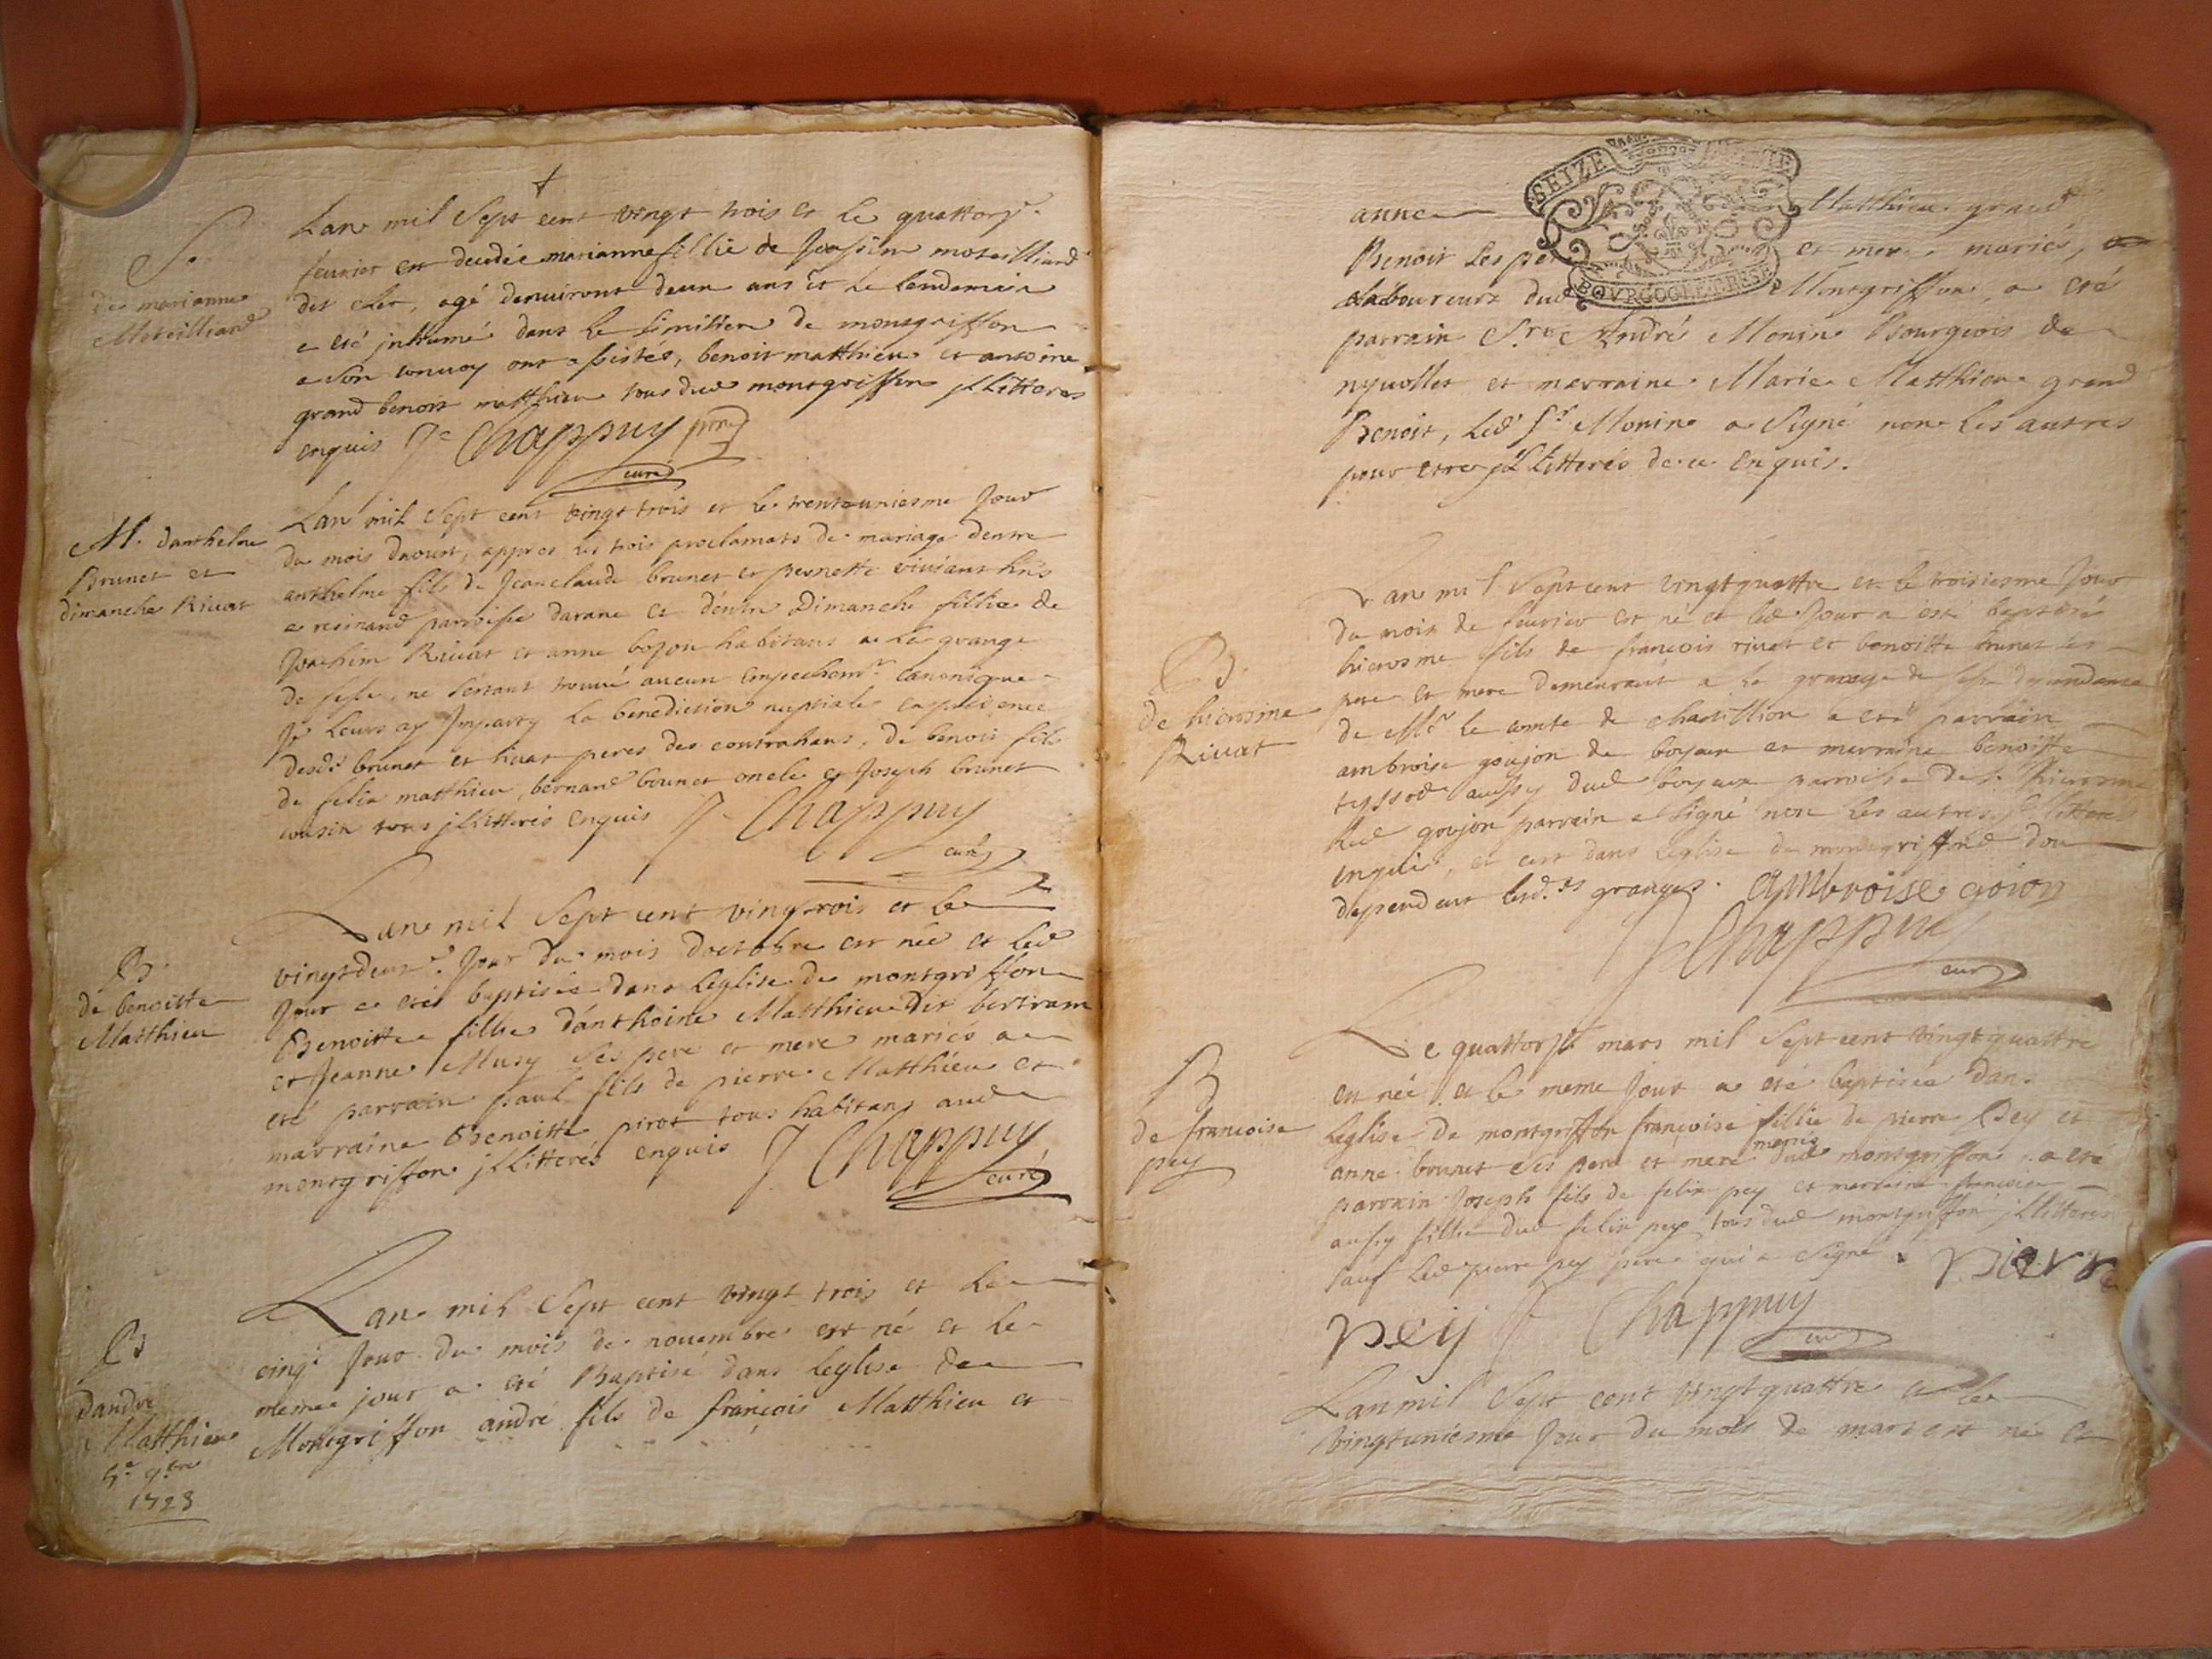 S.
de marianne
Moteilliard
Lan mil Sept cent vingt trois et le quattorze
feurier est decedée marianne fillie de Joachim moteilliard
dit clet, agé denuiront deun ans et le lendemain
a eté jnhumé dans le simitiere de montgriffon
a son conuoy ont assistés, benoit matthieu et antoine
grand benoit matthieu tous dud montgriffon jllitteres
enquis J Chappuy
curé
M. danthelme
Brunet et
dimanche Riuat
Lan mil Sept cent vingt trois et le trenteuniesme Jour
du mois daoust, appres les trois proclamats de mariage dentre
anthelme fils de Jeanclaude brunet et pernette viuiant hris
a resinand parroisse darane et dentre Dimanche fillie de
Joachim Riuat et anne bozon habitans a la grange
de sesse, ne sestant trouué aucun Empechemt. Canonique
Je leurs ay Imparty la benediction nuptiale en presence
desds brunet et riuat peres des contrahans, de benoit fils
de felix matthieu, bernard brunet oncle et Joseph brunet
cousin tous jllitterés enquis J Chappuy
curé
B.
de benoitte
Matthieu
Lan mil Sept cent vingtrois et le
vingtdeuxe. Jour du mois doctobre est née et led
Jour a eté baptisée dans leglise de montgriffon
Benoitte fillie danthoine Matthieu dit bertram
et Jeanne Musy ses pere et mere mariés a
eté parrain paul fils de pierre Matthieu et
marraine Benoitte pirot tous habitans aud
montgriffon jllitterés enquis J Chappuy
curé
B
dandre
Matthieu
5e 9bre
1723
Lan mil Sept cent vingt trois et le
cinqe Jour du mois de nouembre est né et le
meme jour a eté Baptisé dans leglise de
Montgriffon andré fils de françois Matthieu et
SEIZE
BOVRGOGNE BRESSE
anne Matthieu grand
Benoit les per et mere mariés,
laboureurs dud Montgriffon, a eté
parrain Sr. André Monin Bourgeois de
nyuollet et marraine Marie Matthieu grand
Benoit, led Sr. Monin a Signé non les autres
pour etre jllitterés de ce enquis.
B.
de hierosme
Riuat
Lan mil Septcent vingtquattre et le troisiesme Jour
du mois de feurier est né et led Jour a eté baptisé
hierosme fils de françois riuat et benoitte brunet les
pere et mere demeurant a la grange de sesse dependance
de Mr le comte de chatillion a eté parrain
ambroise goujon de boyeux et marraine benoitte
tyssod aussy dud boyeux parroisse de St. Hierosme
led goujon parrain a signé non les autres jllitteres
enquis, et cest dans leglise de montgriffond dou
dependent lesd.es granges. ambroise goion
J Chappuy
curé
B
de francoise
pey
Le quattorze mars mil Sept cent vingtquattre
est née et le meme Jour a eté baptisée dans
leglise de montgriffon françoise fillie de pierre Pey et
anne brunet ses pere et mere mariés dud montgriffon a eté
parrain Joseph fils de felix pey et marraine francoise
aussy fillie dud felix pey tous dud montgriffon jllitteres
sauf led pierre pey pere qui a Signé. pierre
peij J Chappuy
curé
Lanmil Sept cent vingtquattre et le
vingtuniesme Jour du mois de mars est né et